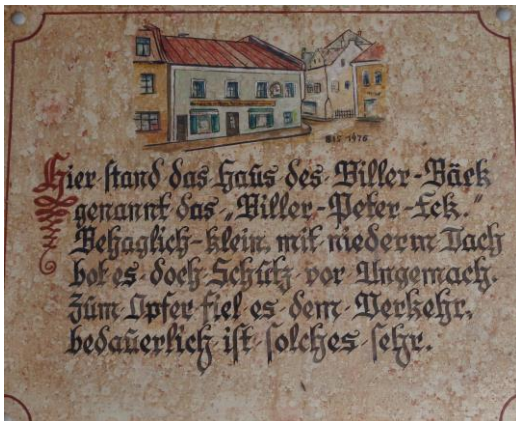 BIS 1976
Hier stand das Haus des Biller-Bäck
genannt das „Biller-Peter-Eck."
Behaglich-klein, mit niederm Dach
bot es doch Schutz vor Ungemach.
Zum Opfer fiel es dem Verkehr,
bedauerlich ist solches sehr.